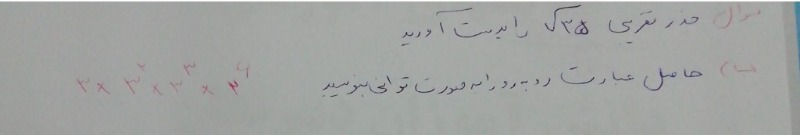 سوال جذر تقریبی √۳۵ را بدست آورید
حاصل عبارت روبه‌رو را به صورت توانی بنویسید ۳ × ۳^۲ × ۳^۳ × ۳^۴